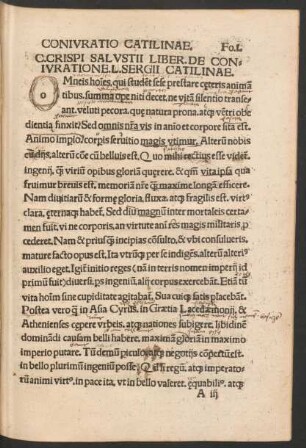 CONIVRATIO CATILINAE. Fo.I.
C. CRISPI SALVSTII LIBER DE CON
IVRATIONE. L. SERGII CATILINAE.
OMneis hoīes, qui studēt sese prestare ceteris animā
tibus. summa ope niti decet, ne vitā silentio transe
ant. veluti pecora. que natura prona. atq; vētri obe
dientia finxit. Sed omnis nr̄a vis in aīo et corpore sita est.
Animo impio, corpīs seruitio magis vtimur. Alterū nobis
cū dijs, alterū cōe cū belluis est. Quo mihi rectius esse videt̄.
ingenij, q̄ viriū opibus gloriā querere. & qm̄ vita ipsa qua
fruimur breuis est. memoriā nr̄i q̄ maxime longā efficere.
Nam diuitiarū & forme gloria, fluxa. atq; fragilis est. virt⁹
clara, eternaq; habet̄. Sed diu magnū inter mortaleis certa-
men fuit. vi ne corporis, an virtute ani res magis militaris p̄
cederet. Nam & prius q̄ incipias cōsulto, & vbi consulueris,
mature facto opus est. Ita vtrūq; per se indigēs. alterū alteri⁹
auxilio eget. Igit̄ initio reges (nā in terris nomen imperij id
primū fuit) diuersi. ps ingeniū. alij corpus exercebāt. Etiā tū
vita hoīm sine cupiditate agitabat̄. Sua cuiq; satis placebāt.
Postea vero q̄ in Asia Cyrus. in Grætia Lacedæmonij, &
Athenienses cepere vrbeis. atq; nationes subigere. libidinē
dominādi causam belli habere. maximā gloriā in maximo
imperio putare. Tū demū piculo, atq; negotijs cōpertū est.
in bello plurimū ingeniū posse. Qd si regū. atq; imperato-
rū animi virt⁹. in pace ita, vt in bello valeret. equabili⁹. atq;
A iij